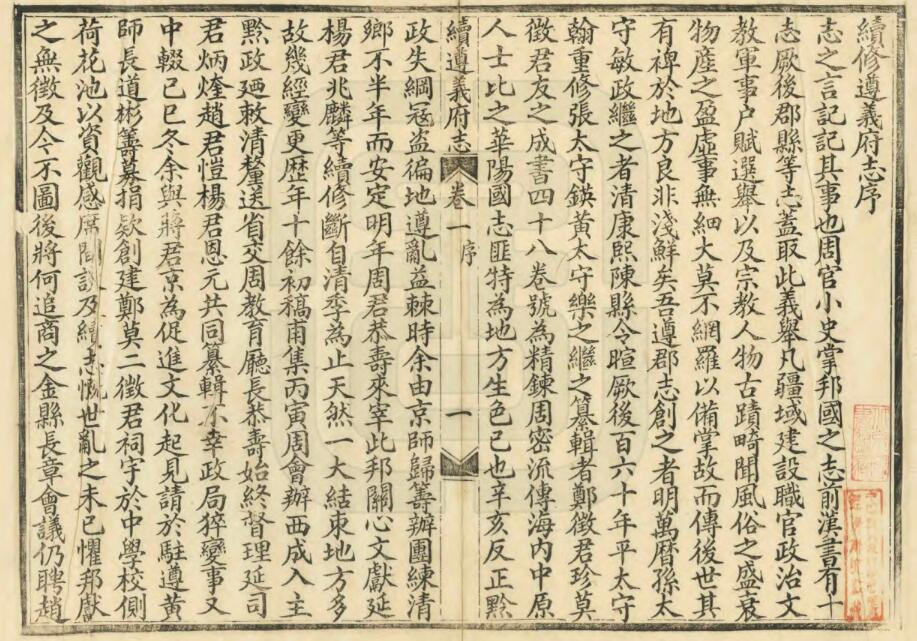 續修遵義府志序
志之言記記其事也周官小史掌邦國之志前漢書有十
志厥後郡縣等志蓋取此義舉凡疆域建設職官政治文
教軍事户賦選舉以及宗教人物古蹟畸聞風俗之盛衰
物產之盈虛事無細大莫不網羅以備掌故而傳後世其
有裨於地方良非淺鮮矣吾遵郡志創之者明萬曆孫太
守敏政繼之者清康熙陳縣令暄厥後百六十年平太守
翰重修張太守鍈黃太守樂之繼之纂輯者鄭徵君珍莫
徵君友之成書四十八卷號為精鍊周密流傳海內中原
人士比之華陽國志匪特為地方生色已也辛亥反正黔
續遵義府志 卷一 序 一
政失綱寇盜徧地遵亂益棘時余由京師歸籌辦團練清
鄉不半年而安定明年周君恭壽來宰此邦關心文獻延
楊君兆麟等續修斷自清季為止天然一大結束地方多
故幾經變更歷年十餘初稿甫集丙寅周會辦西成入主
黔政廼敕清釐送省交周教育廳長恭壽始終督理延司
君炳煃趙君愷楊君恩元共同纂輯不幸政局猝變事又
中輟已巳冬余與蔣君京為促進文化起見請於駐遵黃
師長道彬籌募捐欵創建鄭莫二徵君祠宇於中學校側
荷花池以資觀感席間談及續志慨世亂之未已懼邦獻
之無徵及今不圖後將何追商之金縣長章會議仍聘趙